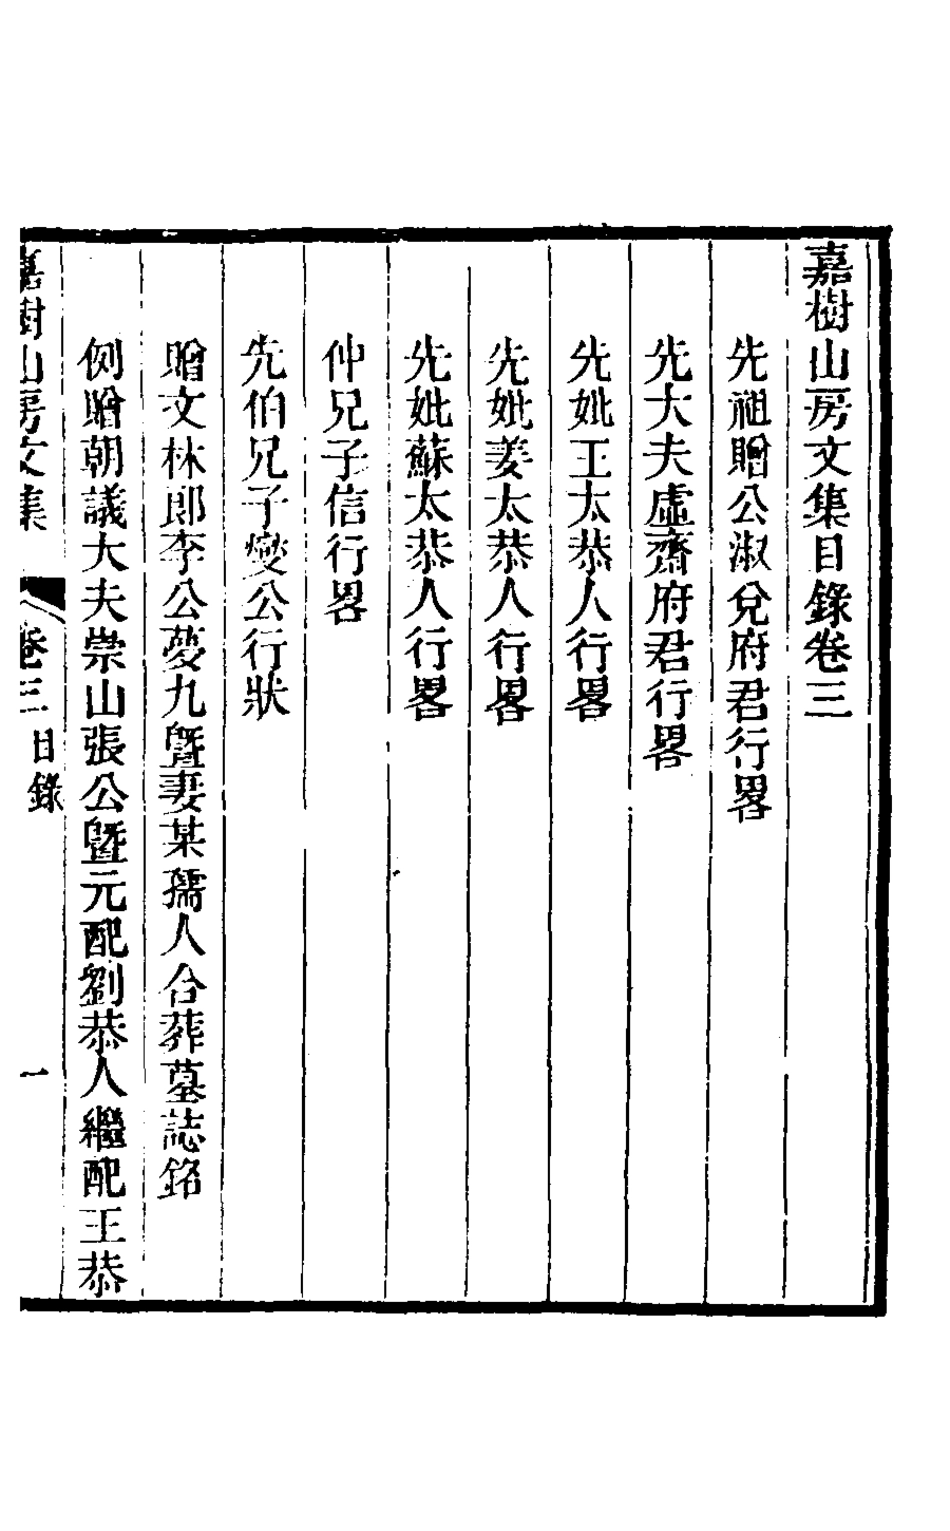 嘉樹山房文集目錄卷三
先祖贈公淑兌府君行畧
先大夫虛齋府君行畧
先妣王太恭人行畧
先妣姜太恭人行畧
先妣蘇太恭人行畧
仲兄子信行畧
先伯兄子燮公行狀
贈文林郎李公夢九曁妻某孺人合葬墓誌銘
例贈朝議大夫崇山張公曁元配劉恭人繼配王恭
嘉樹山房文集 卷三 目錄 一